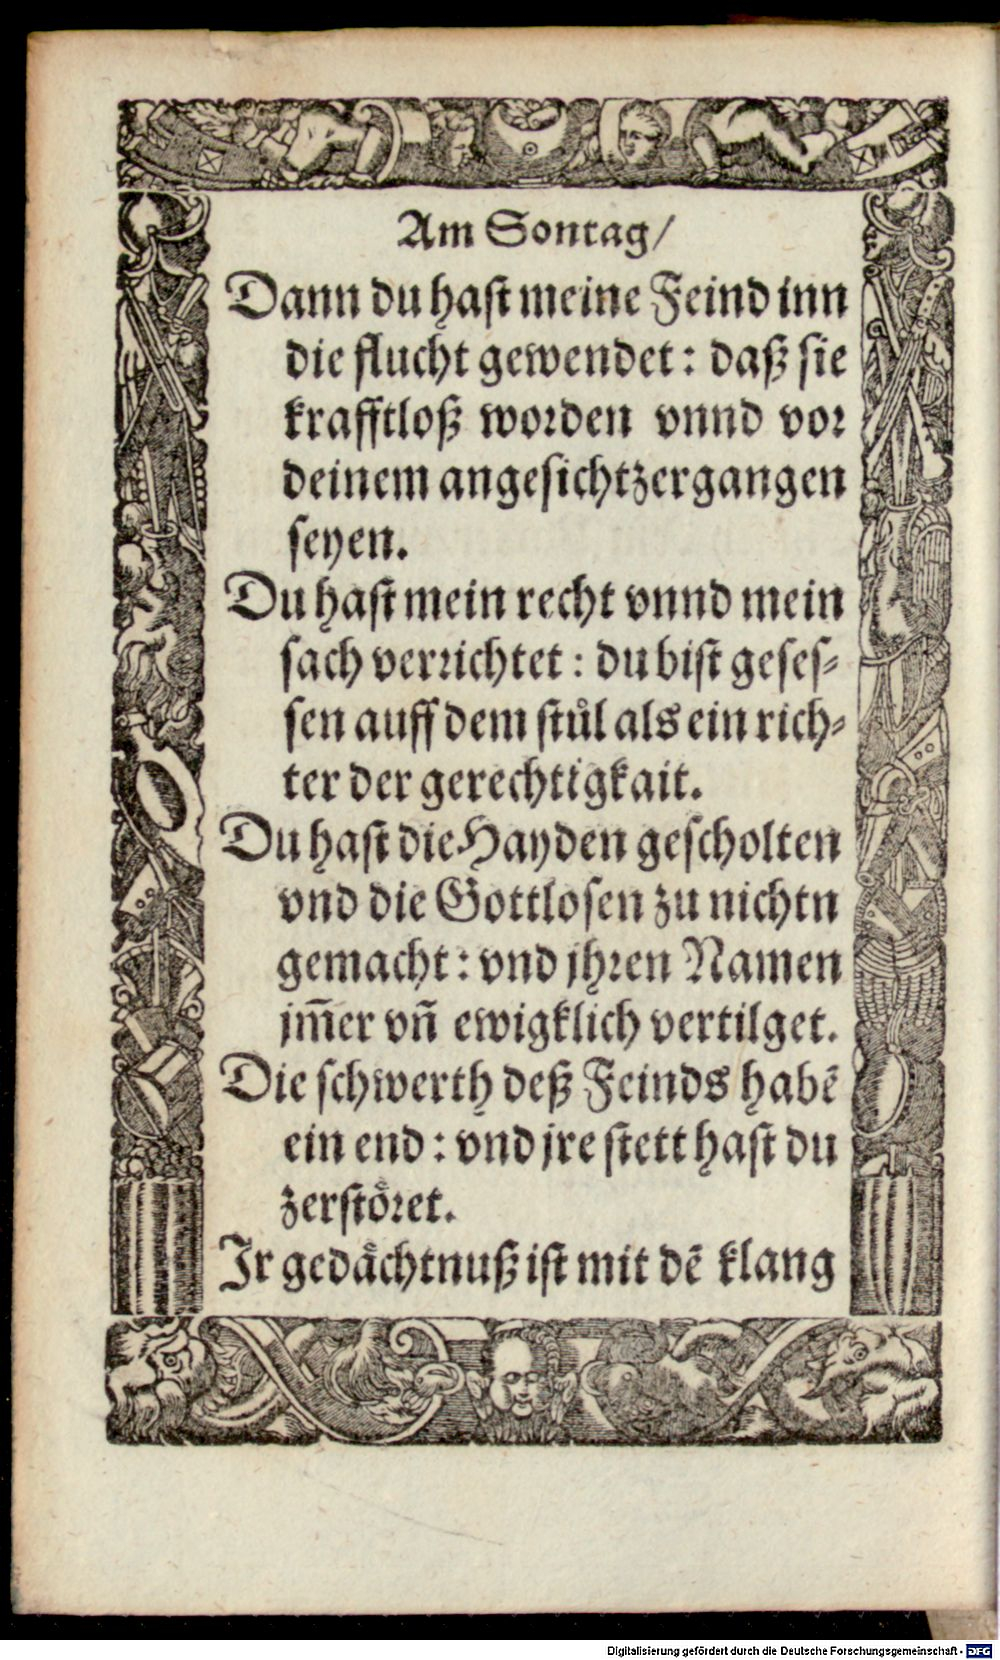 Am Sontag/
Dann du haſt meine Feind inn
die flucht gewendet: daß ſie
krafftloß worden vnnd vor
deinem angeſicht zergangen
ſeyen.
Du haſt mein recht vnnd mein
ſach verrichtet: du biſt geſeſ⸗
ſen auff dem ſtuͦl als ein rich⸗
ter der gerechtigkait.
Du haſt die Hayden geſcholten
vnd die Gottloſen zu nichtn
gemacht: vnd jhren Namen
jm̃er vñ ewigklich vertilget.
Die ſchwerth deß Feinds habẽ
ein end: vnd jre ſtett haſt du
zerſtoͤret.
Jr gedaͤchtnuß iſt mit dẽ klang
Digitalisierung gefördert durch die Deutsche Forschungsgemeinschaft - DFG